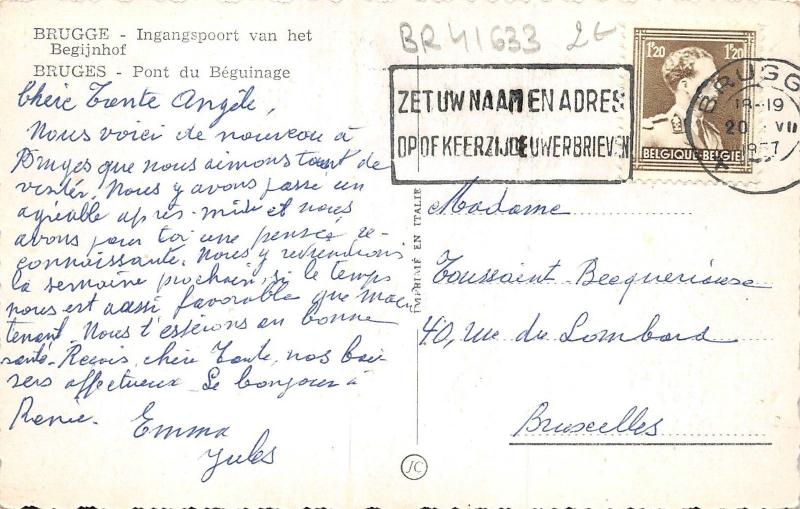 BRUGGE - Ingangspoort van het
Begijnhof
BRUGES - Pont du Béguinage
BR 41633 2€
Chère Tante Angèle,
Nous voici de nouveau à
Bruges que nous aimons tant de
visiter. Nous y avons passé un
agréable après-midi et nous
avons pour toi une pensée re-
connaissante. Nous y reviendrons
la semaine prochain, si le temps
nous est aussi favorable que main
tenant. Nous t'espérons en bonne
santé. Reçois, chère Tante, nos bai-
sers affectueux. Le bonjour à
Emma
Jules
ZET UW NAAM EN ADRES
OP OF KEERZIJDE UWER BRIEVEN
1'20 1'20
BELGIQUE-BELGIE
BRUGG
18-19
20 VII
1957
IMPRIMÉ EN ITALIE
Madame
Toussaint
40, rue du Lombard
Bruxelles
JC